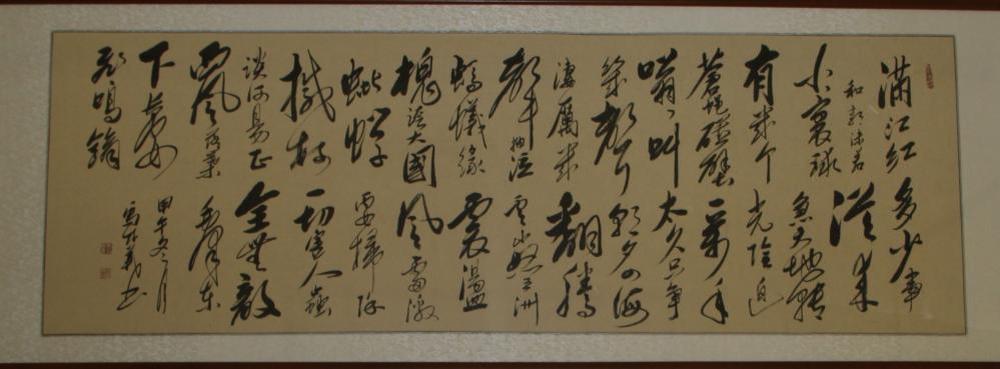 满江红
和郭沫若
小小寰球
有几个
蒼蝇碰壁
嗡嗡叫
几声
凄厲几
声抽泣
蚂蟻缘
槐夸大國
蚍蜉
撼树
谈何易正
西风落葉
下长安
飛鸣镝
多少事
從来
急天地转
光陰迫
一萬年
太久只争
朝夕四海
翻腾
雲水怒五洲
震盪
风雷激
要掃除
一切害人蟲
全無敵
毛泽东
甲午冬月